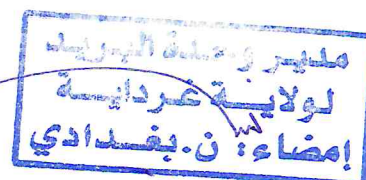 مدير وحدة البريد
لولاية غرداية
إمضاء: ن.بغدادي